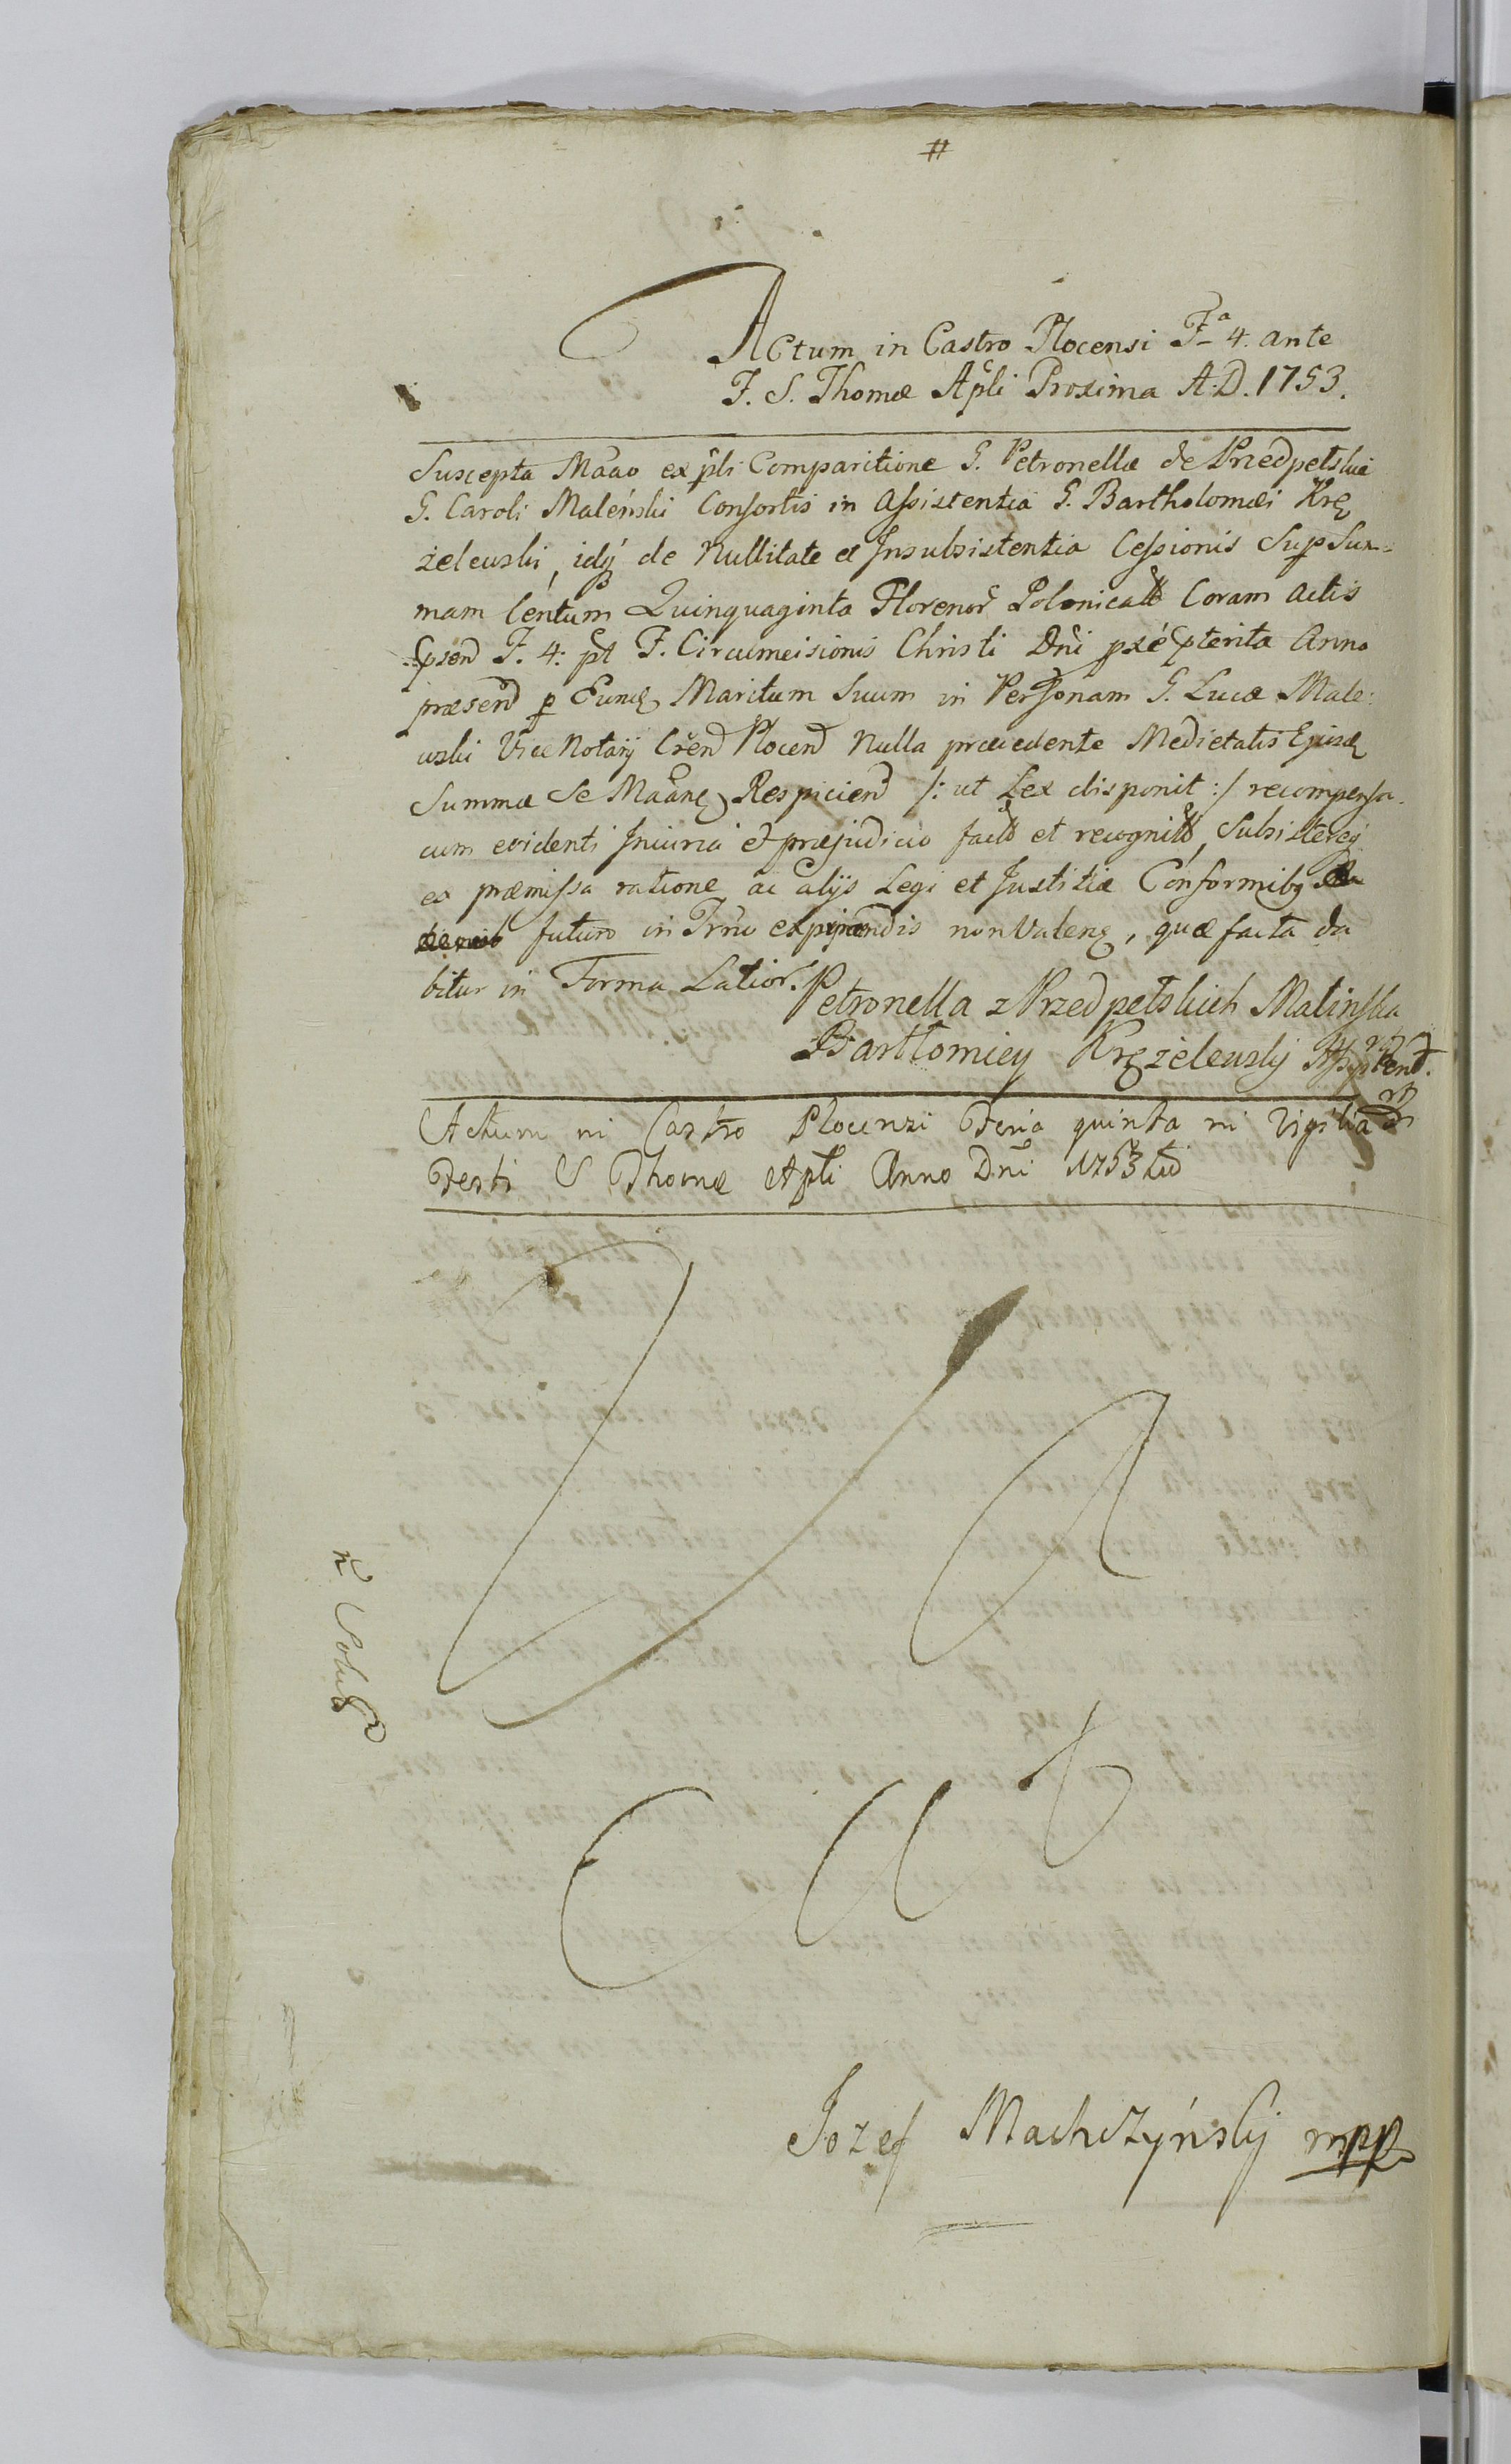 #
Actum in Castro Plocensi Fa 4. ante
F. S. Thomæ Apli Proxima A.D. 1753.
Suscepta Maãao ex pli Comparitione G. Petronellæ de Przedpełskie
G. Caroli Maleński Consortis in Assistentia G. Bartholomæi Krę
żelewski, idq de Nullitate et Insubsistentia Cessionis Sup Sum-
mam Centum Quinquaginta Florenor Polonicall Coram Actis
psen F. 4: pt F. Circumcisionis Christi Dni Anno
præsen p Eunq Maritum Suum in Personam G. Lucæ Male:
wski Vice Notarij Cren Plocen Nulla præcedente Medietatis Ejusq
Summæ Se Maanq Respicien /: ut Lex disponit :/ recompensa.
cum evidenti Iniuria et præjudicio fact et recognit, Subsistereq
ex præmissa ratione ac alijs Legi et Justitiæ Conformibq
futuro in Trno non Valenq, quæ facta da
bitur in Forma Latior.
Petronella z Przedpełskich Malinska
Bartłomiey Krężelewsky Assysten. mp
Actum in Castro Plocensi Feria quinta in Vigilia
Festi S Thomæ Apli Anno Dni 1753tio
Vacat
Jozef Machczyńsky mpp